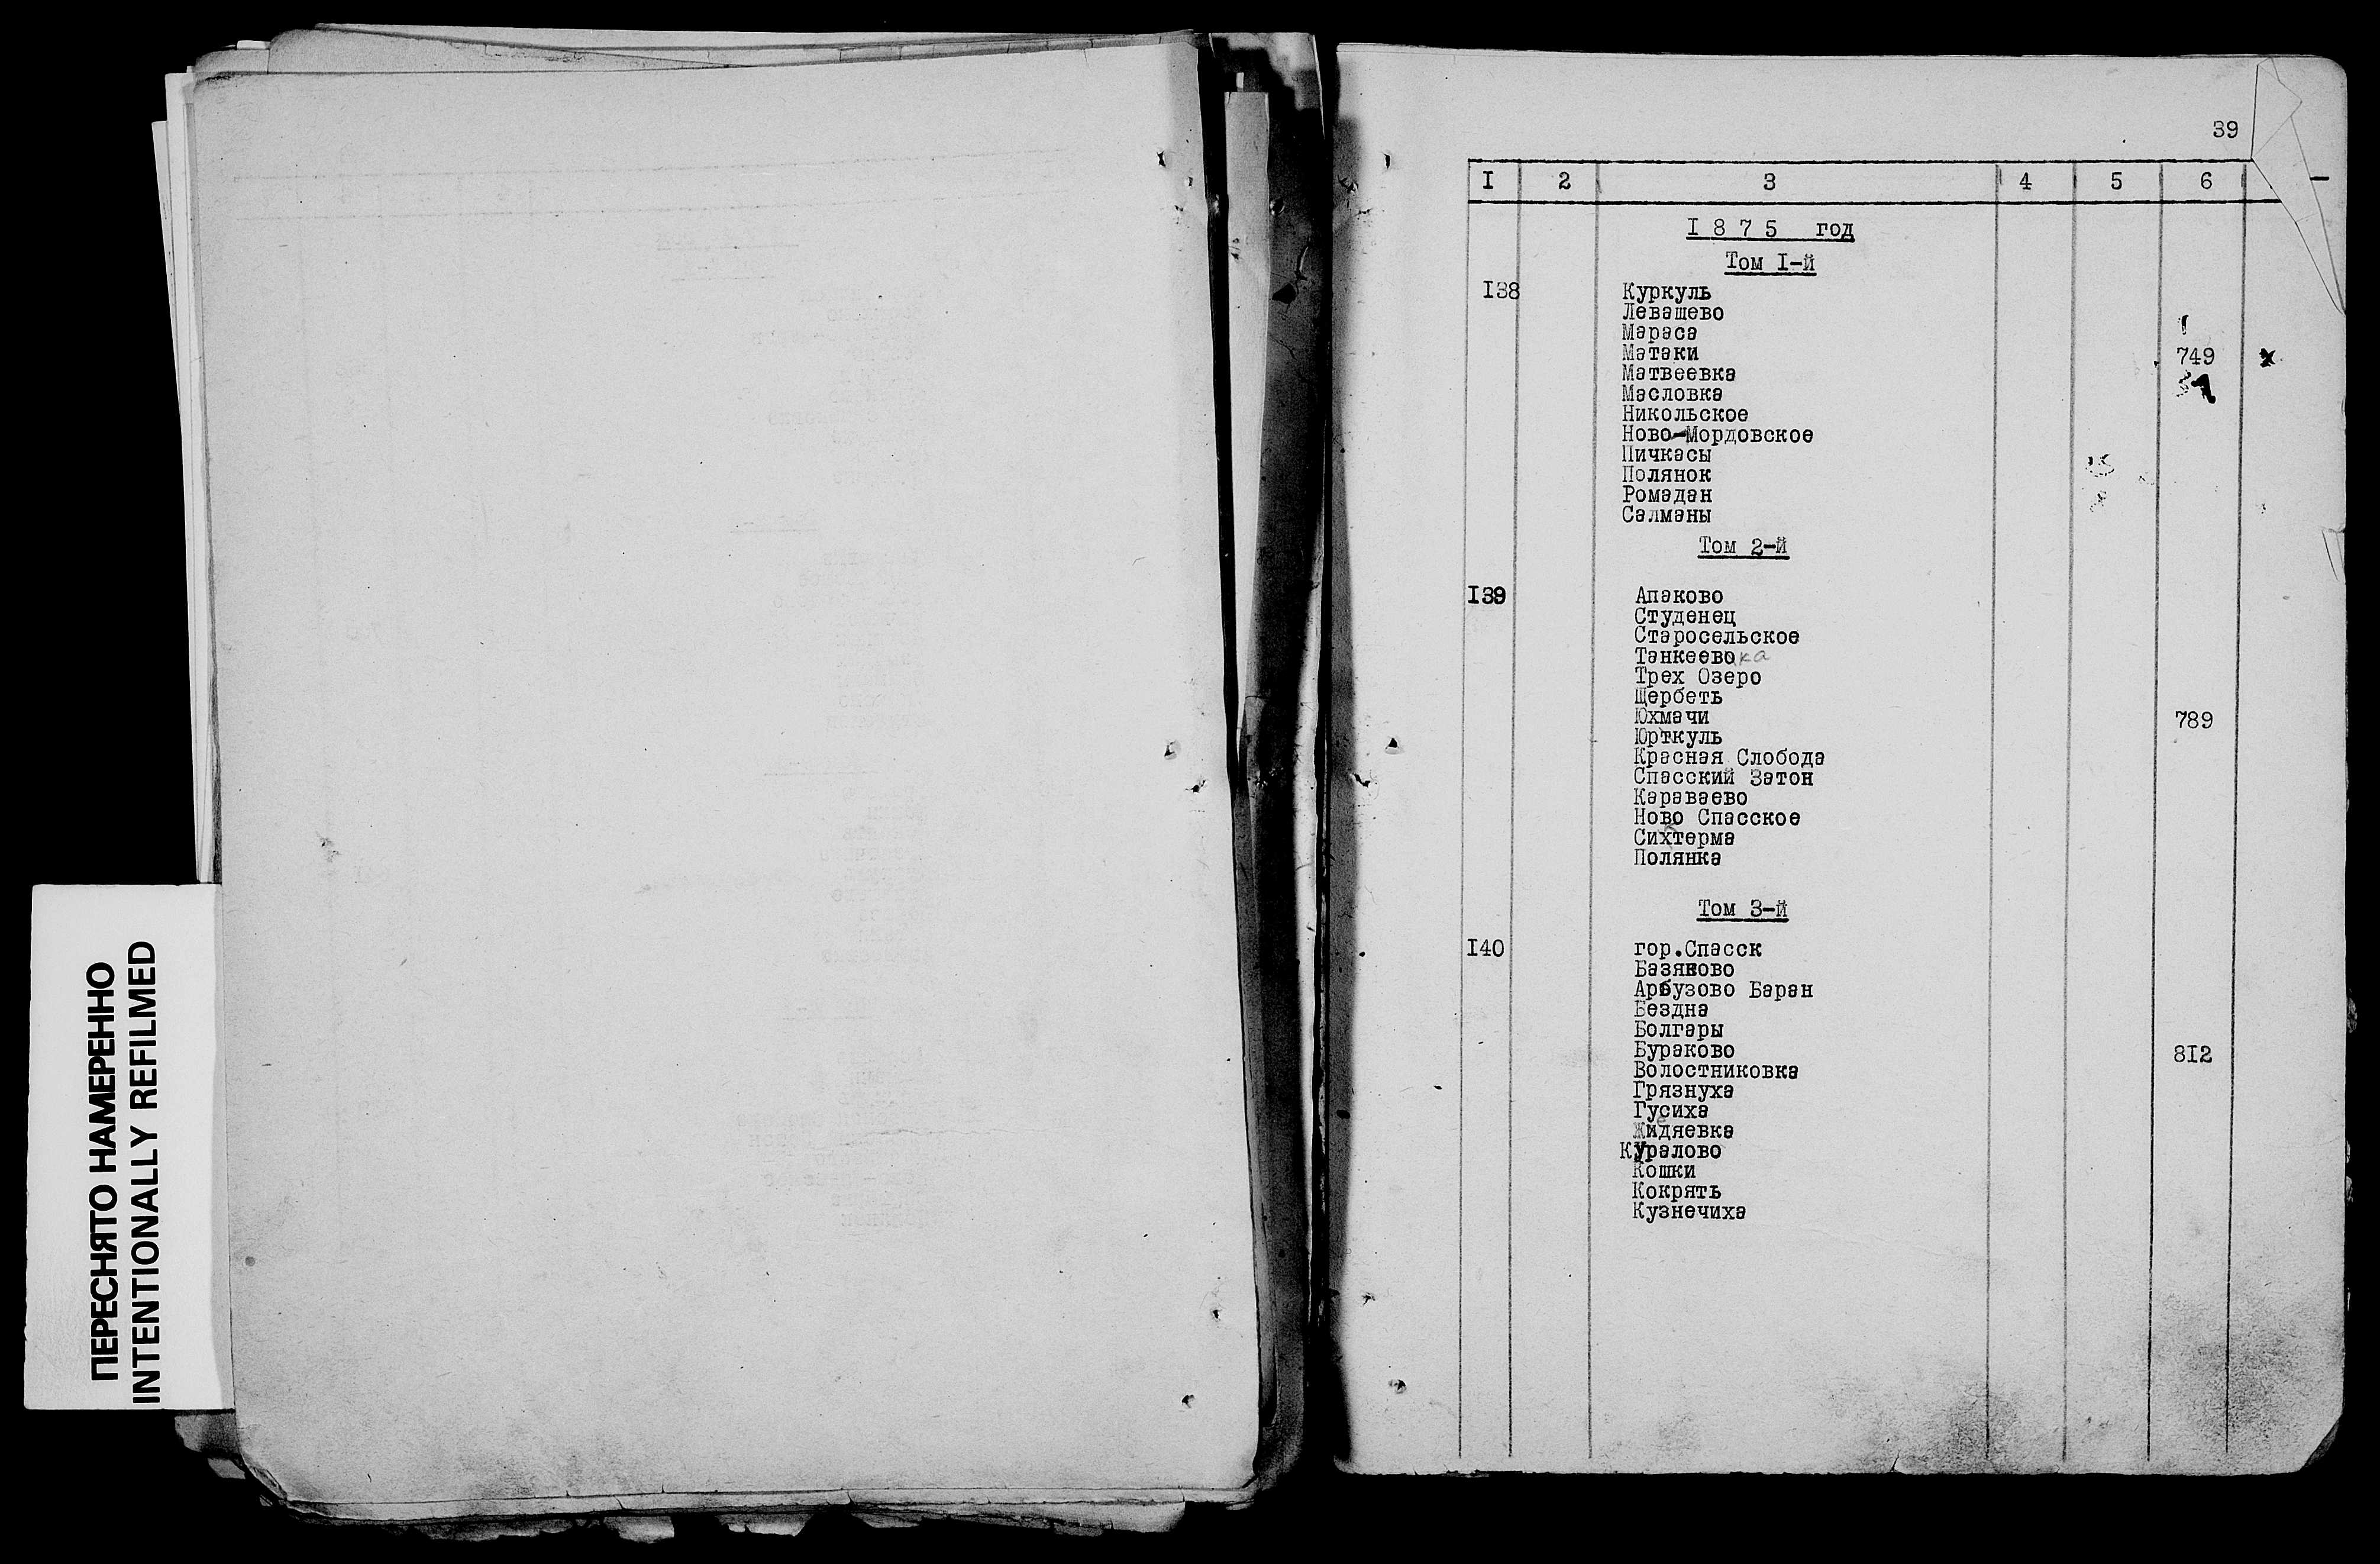 ПЕРЕСНЯТО НАМЕРЕННО
INTENTIONALLY REFILMED
39
I 2 3 4 5 6
I 8 7 5 год
Том I-й
I38 Куркуль
Левашево
Мараса
Матаки 749
Матвеевка
Масловка
Никольское
Ново-Мордовское
Пичкасы
Полянок
Ромадан
Салманы
Том 2-й
I39 Апаково
Студенец
Старосельское
Танкеевока
Трех Озеро
Щербеть
Юхмачи 789
Юрткуль
Красная Слобода
Спасский Затон
Караваево
Ново Спасское
Сихтерма
Полянка
Том 3-й
I40 гор.Спасск
Базяково
Арбузово Баран
Бездна
Болгары
Бураково 8I2
Волостниковка
Грязнуха
Гусиха
Жидяевка
Куралово
Кошки
Кокрять
Кузнечиха